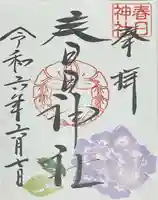 奉拝
春日
神社
春日神社
令和六年六月七日